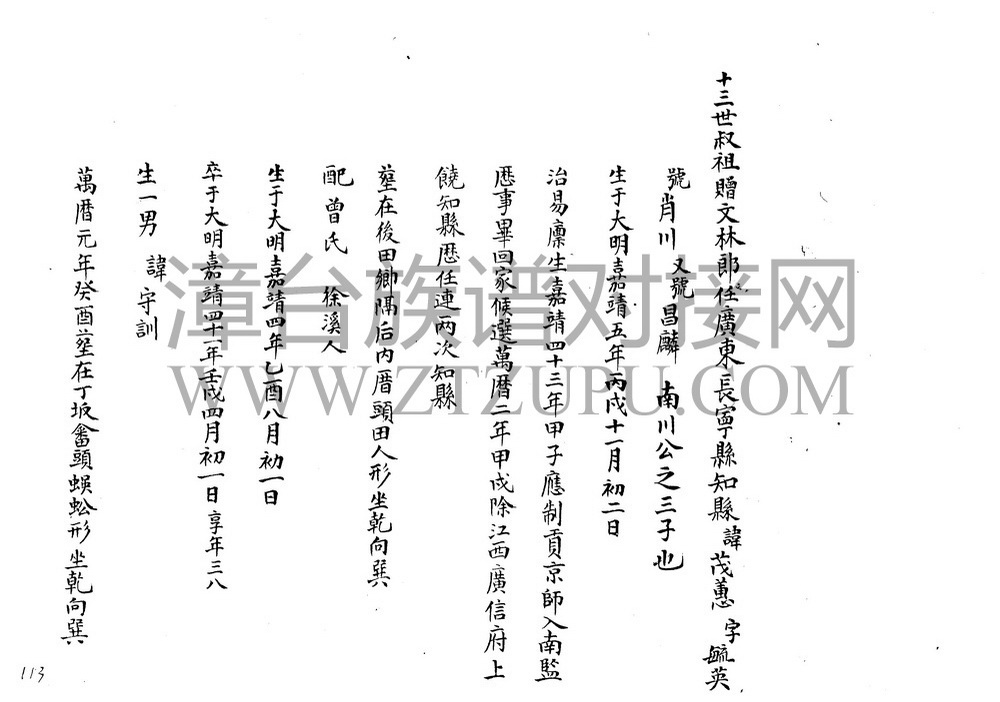 十三世叔祖贈文林郎任廣東長寧縣知縣 諱茂蕙 字毓英
號肖川 又號昌麟 南川公之三子也
生于大明嘉靖五年丙戌十一月初二日
治易廩生嘉靖四十三年甲子應制貢京師入南監
歷事畢回家候選萬曆二年甲戌除江西廣信府上
饒知縣歷任連兩次知縣
塟在後田鄉隔后内厝頭田人形坐乾向巽
配曾氏 徐溪人
生于大明嘉靖四年乙酉八月初一日
卒于大明嘉靖四十一年壬戌四月初一日享年三八
生一男 諱守訓
萬曆元年癸酉塟在丁坂畲頭蜈蚣形坐乾向巽
113
漳台族谱对接网
WWW.ZTZUPU.COM